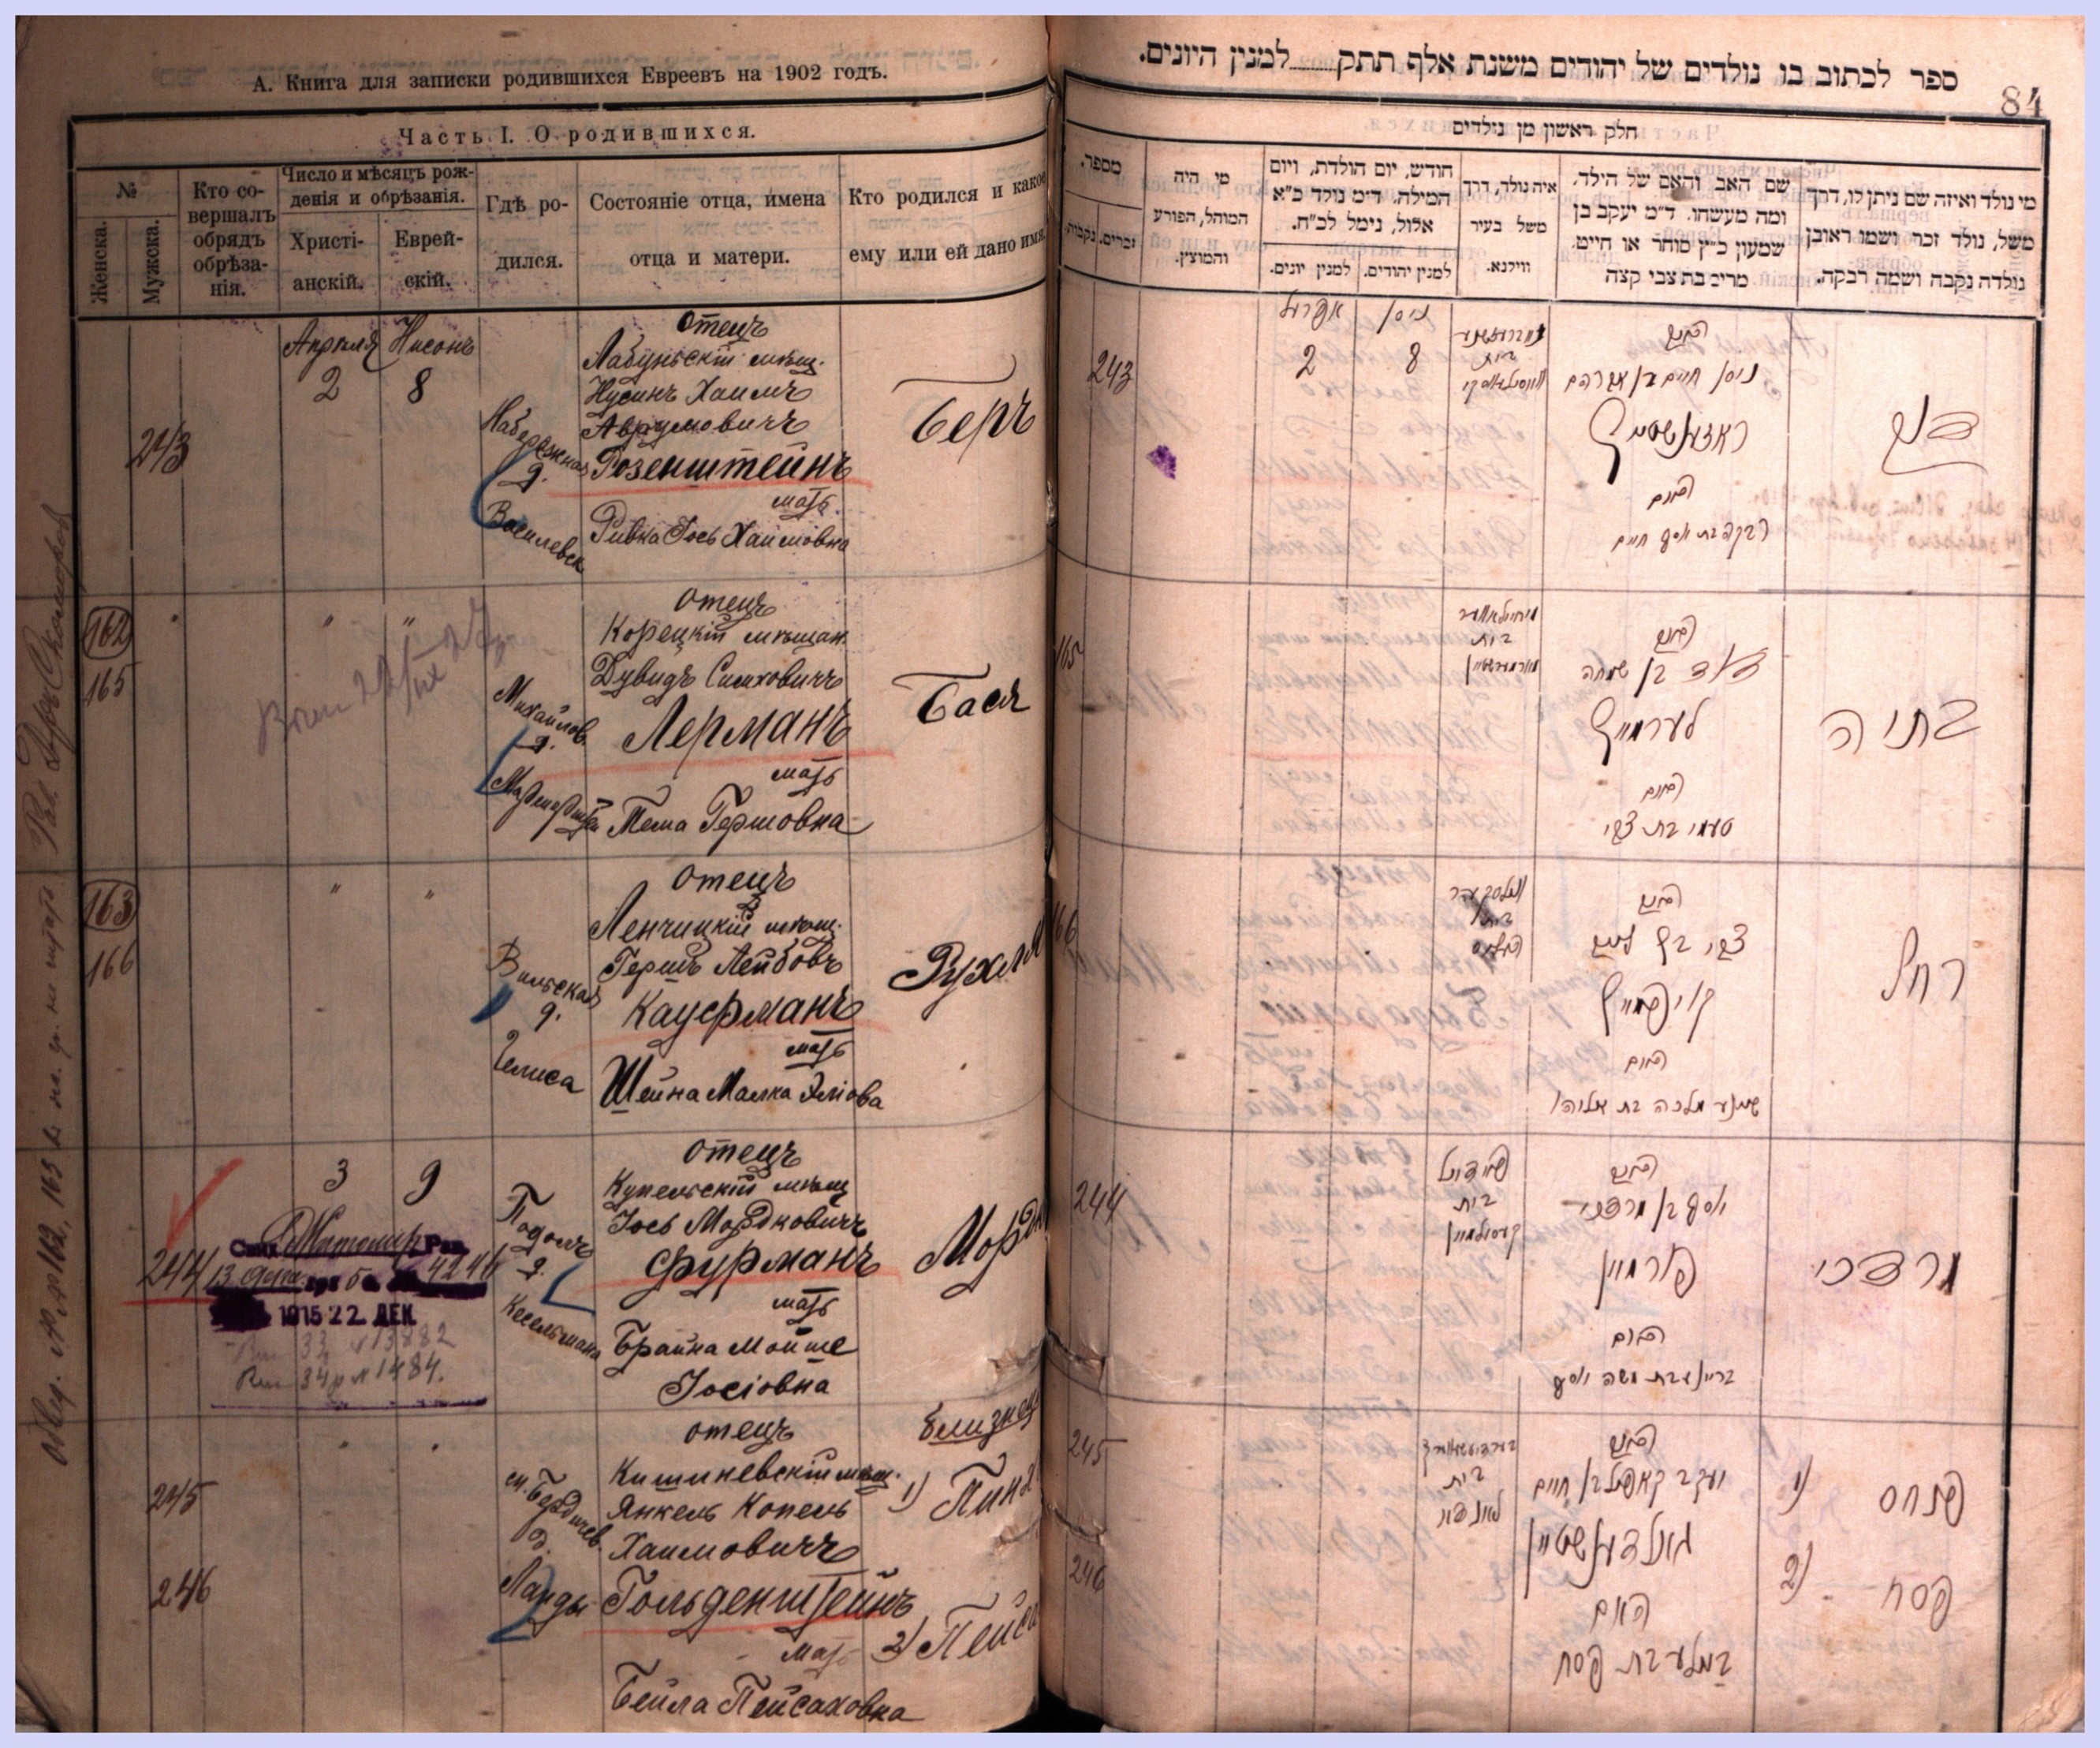 А. Книга для записки родившихся Евреевъ на 1902 годъ.
Часть I. О родившихся.
№
Женска.
Мужска.
Кто совершалъ обрядъ обрѣзанія.
Число и мѣсяцъ рожденія и обрѣзанія.
Христіанскій.
Еврейскій.
Гдѣ родился.
Состояніе отца, имена отца и матери.
Кто родился и какое ему или ей дано имя.
Апрѣля Нисонъ
2 8
243
Набережная
д.
Василевск
отецъ
Лабунскій мѣщ.
Нусинъ Хаимъ
Аврумовичъ
Розенштейнъ
мать
Ривка Іось Хаимовна
Беръ
162
165
" "
Михайлов.
д.
отецъ
Корецкій мѣщан.
Дувидъ Симховичъ
Лерманъ
мать
Тема Гершовна
Бася
163
166
" "
Вильская
д.
Гелиса
отецъ
Ленчицкій мѣщ.
Гершъ Лейбовъ
Кауфманъ
мать
Шейна Малка Эліова
Рухля
3 9
244
1915 22 ДЕК.
33 № 13882
34 № 1484.
Подолъ
д.
Кесельмана
отецъ
Купельскій мѣщ
Іось Мордковичъ
Фурманъ
мать
Брайна Мойше
Іосіовна
245
246
Бердичев.
д.
Ланды
отецъ
Кишиневскій мѣщ.
Янкель Копель
Хаимовичъ
Гольденштейнъ
мать
Бейла Пейсаховна
близнецы
1) Пинх
2) Пейса
84
ספר לכתוב בו נולדים של יהודים משנת אלף תתק......למנין היונים.
חלק ראשון מן נולדים
מספר.
זכרים. נקבות.
מי היה המוהל, הפורע והמוצץ.
חודש, יום הולדת, ויום המילה. ד״מ נולד כ״א אלול, נימל לכ״ח.
למנין יונים. למנין יהודים.
איה נולד, דרך משל בעיר ווילנא.
שם האב והאם של הילד, ומה מעשהו. ד״מ יעקב בן שמעון כ״ץ סוחר או חייט. מרים בת צבי קצה
מי נולד ואיזה שם ניתן לו, דרך משל, נולד זכר ושמו ראובן נולדה נקבה ושמה רבקה.
243
אפריל ניסן
2 8
האב
ניסן חיים בן אברהם
ראזענשטיין
האם
רבקה בת יוסף חיים
165
בית
האב
דוד בן שמחה
לערמאן
האם
טעמי בת צבי
בתיה
166
בית
האב
צבי בן ליב
קויפמאן
האם
שיינע מלכה בת אליהו
רחל
244
בית
קעסעלמאן
האב
יוסף בן מרדכי
פורמאן
האם
בריינא בת משה יוסף
מרדכי
245
246
בית
לאנדא
האב
יעקב קאפיל בן חיים
גאלדענשטיין
האם
ביילע בת פסח
1) פנחס
2) פסח